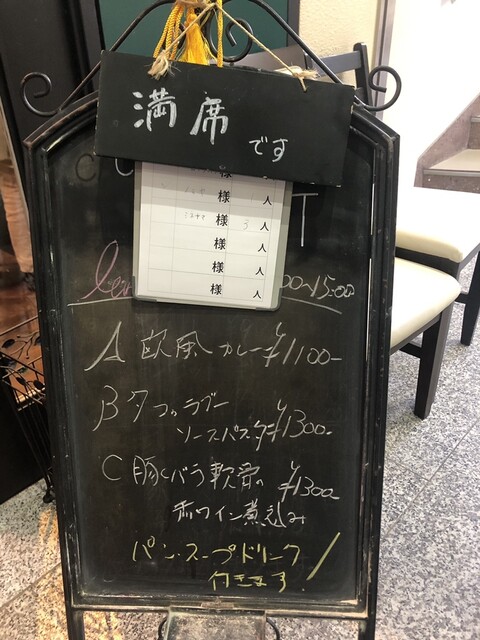 満席
です
様 人
様 人
様 3 人
様 人
様 人
様 人
T
00~15:00
A 欧風カレー ¥1100-
B タコのラグー
ソースパスタ ¥1300-
C 豚バラ軟骨の ¥1300-
赤ワイン煮込み
パン・スープドリンク
付きます